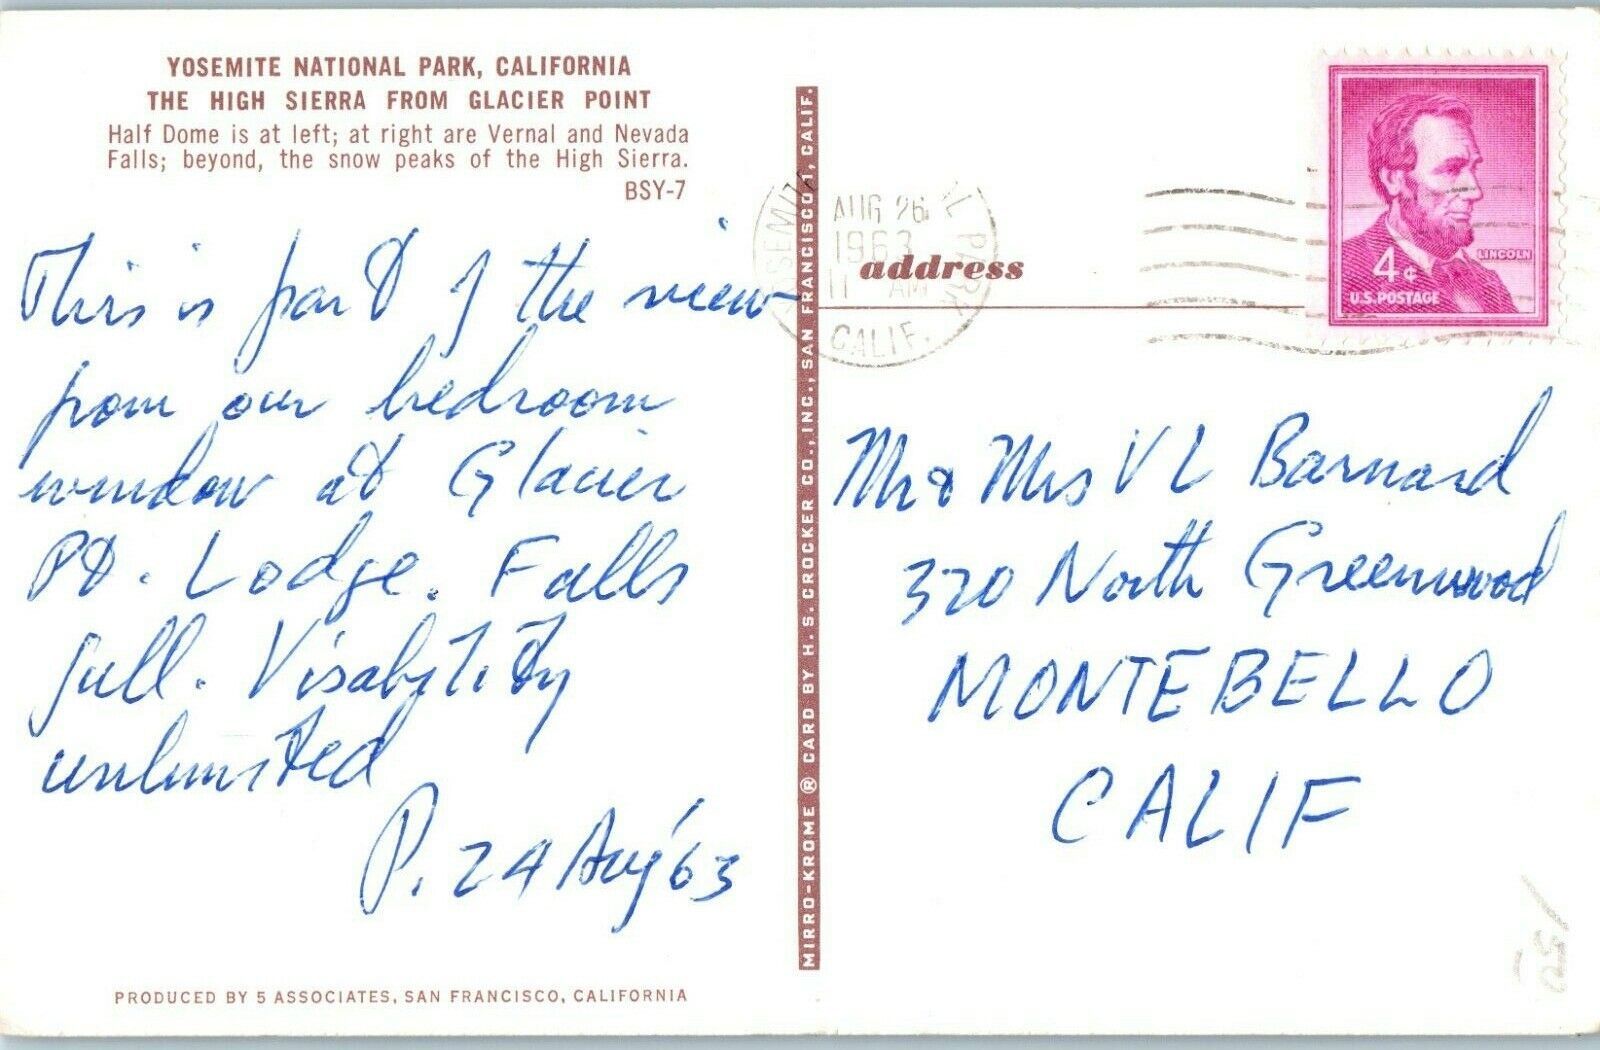 YOSEMITE NATIONAL PARK, CALIFORNIA
THE HIGH SIERRA FROM GLACIER POINT
Half Dome is at left; at right are Vernal and Nevada
Falls; beyond, the snow peaks of the High Sierra.
BSY-7
This is part of the view
from our bedroom
window at Glacier
Pt. Lodge. Falls
full. Visability
unlimited
P. 24 Aug '63
PRODUCED BY 5 ASSOCIATES, SAN FRANCISCO, CALIFORNIA
MIRRO-KROME ® CARD BY H. S. CROCKER CO., INC., SAN FRANCISCO 1, CALIF.
AUG 26
1963
11 AM
PARK
CALIF.
address
LINCOLN
4¢
U.S. POSTAGE
Mr & Mrs V L Barnard
320 North Greenwood
MONTEBELLO
CALIF
150